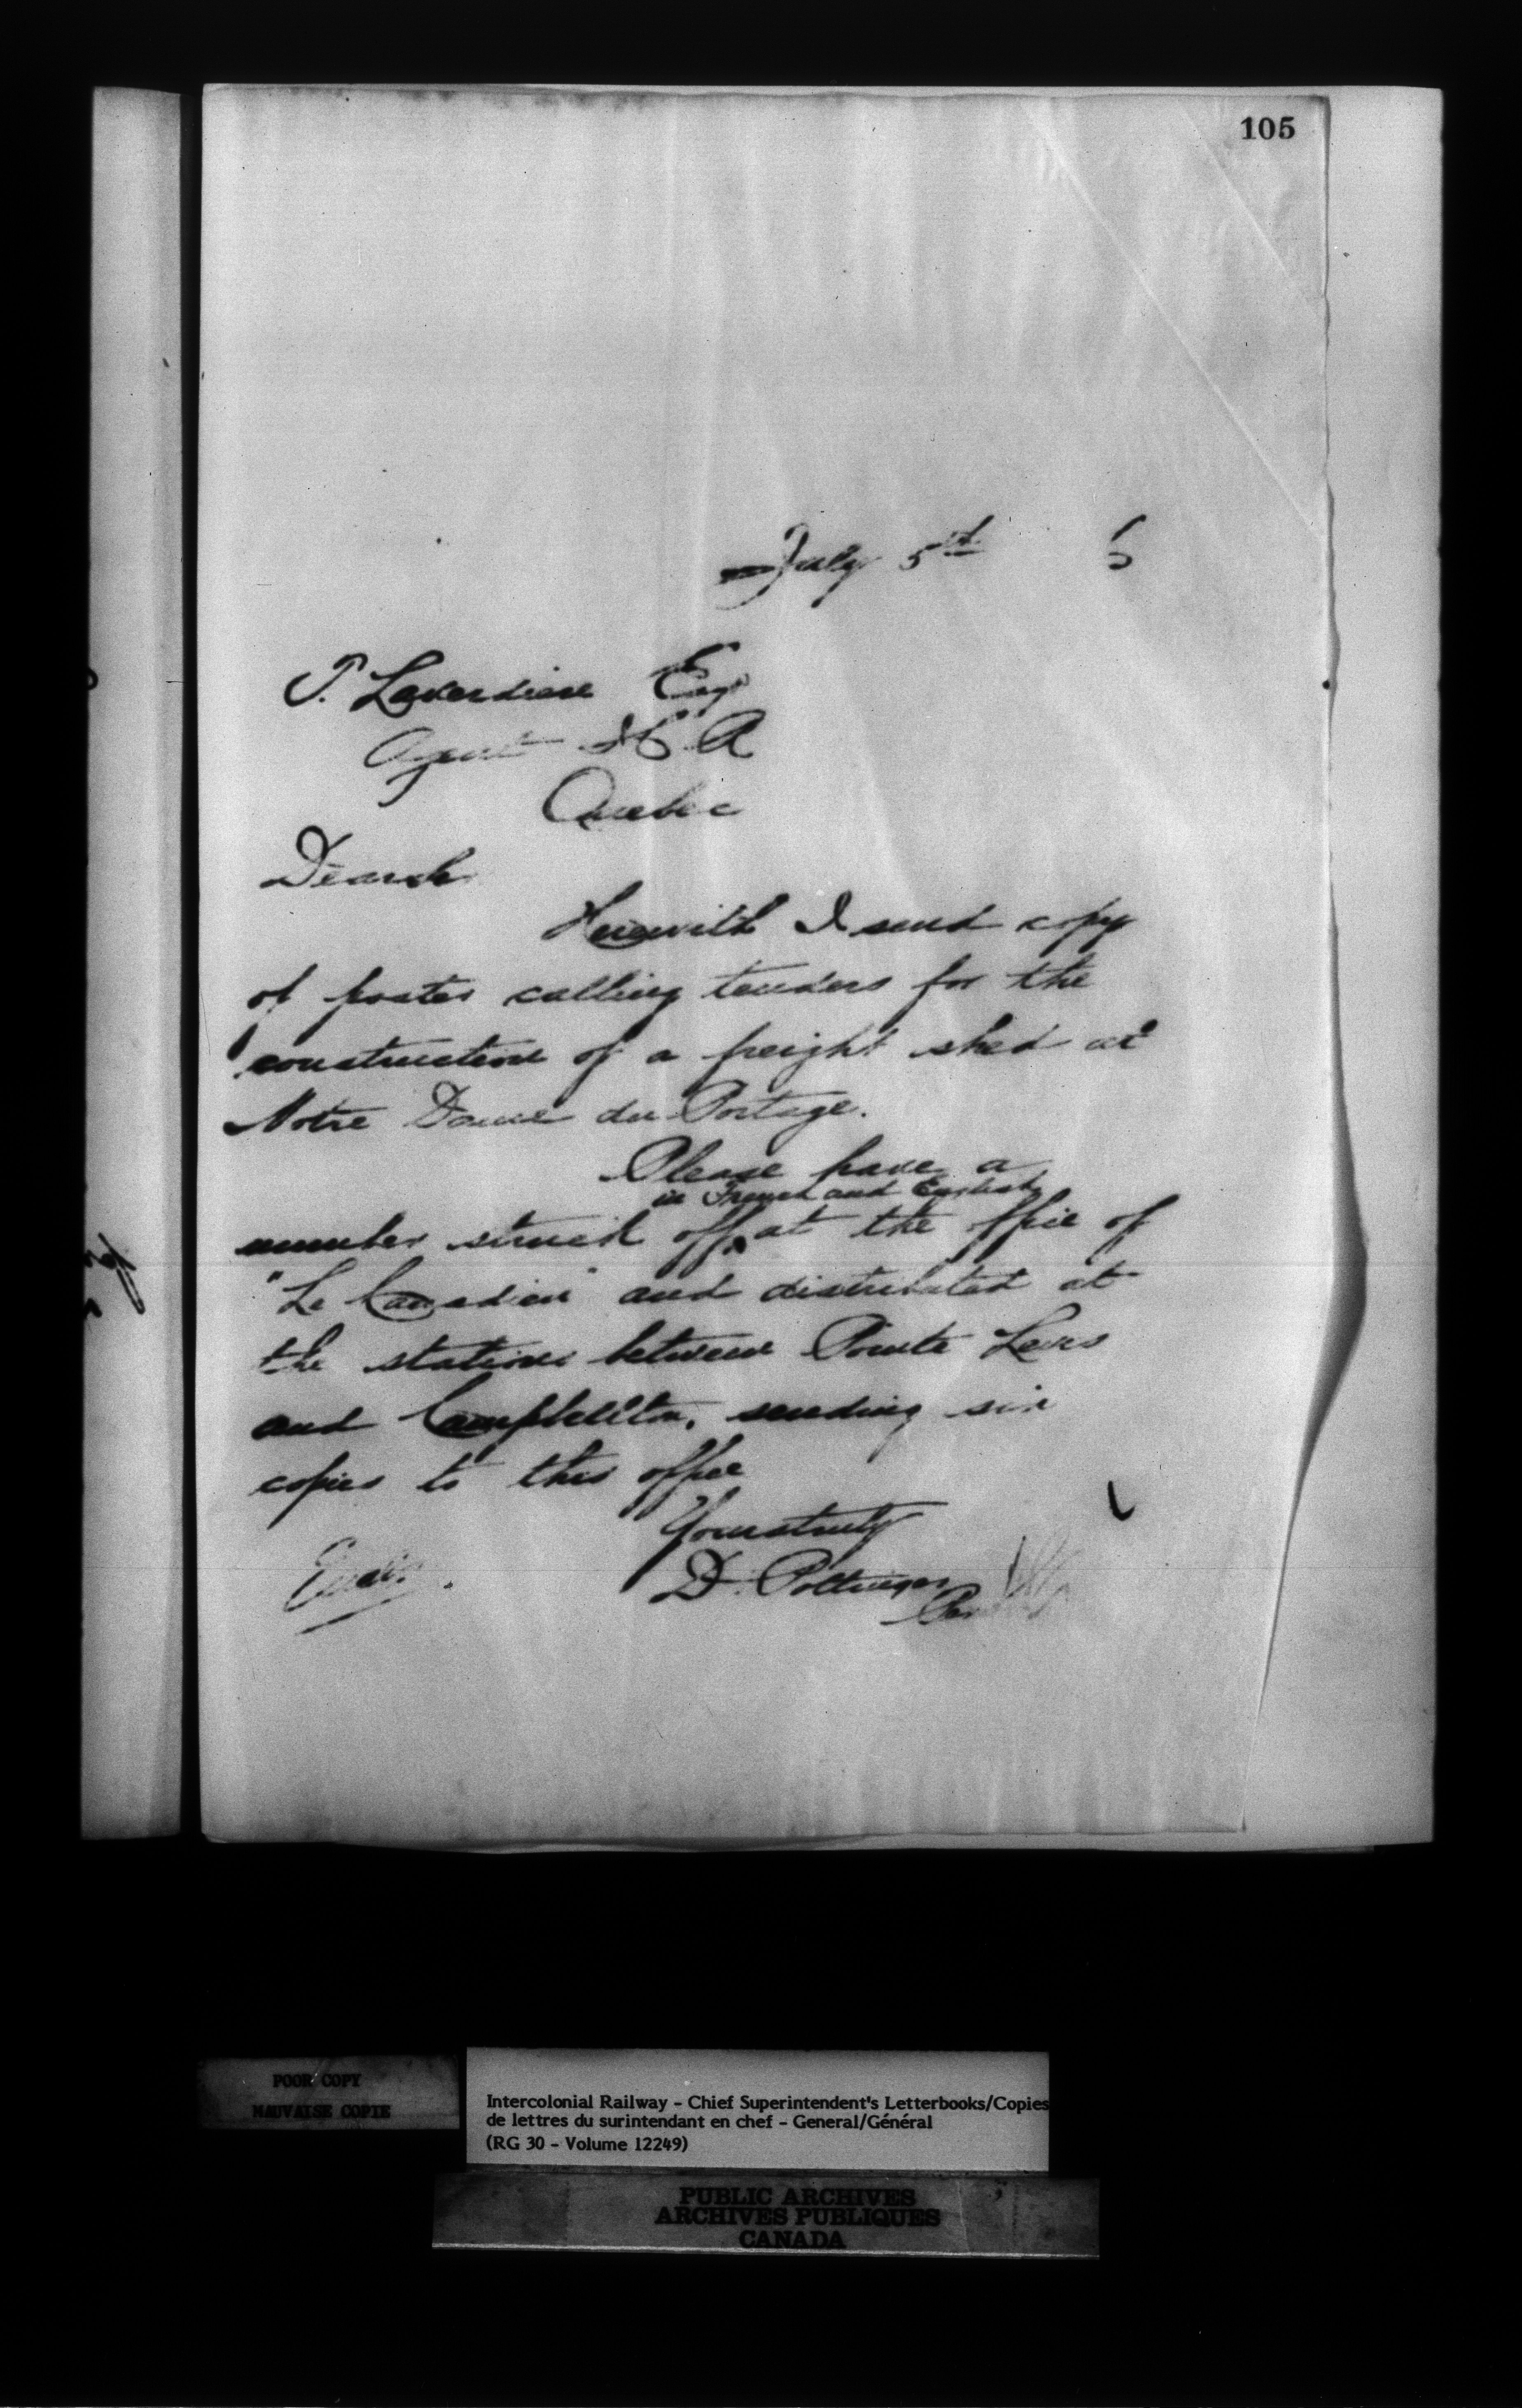 105
July 5th 5
P. Laverdiere Esq
Agent I C R
Quebec
Dear sir
Herewith I send copy
of poster calling tenders for the
construction of a freight shed at
Notre Dame du Portage.
Please have a
in French and English
number struck off at the office of
"Le Canadien" and distributed at
the stations between Pointe Levis
and Campbellton, sending six
copies to this office
Yours truly
D. Pottinger
Encl.
POOR COPY
MAUVAISE COPIE
Intercolonial Railway - Chief Superintendent's Letterbooks/Copies
de lettres du surintendant en chef - General/Général
(RG 30 - Volume 12249)
PUBLIC ARCHIVES
ARCHIVES PUBLIQUES
CANADA